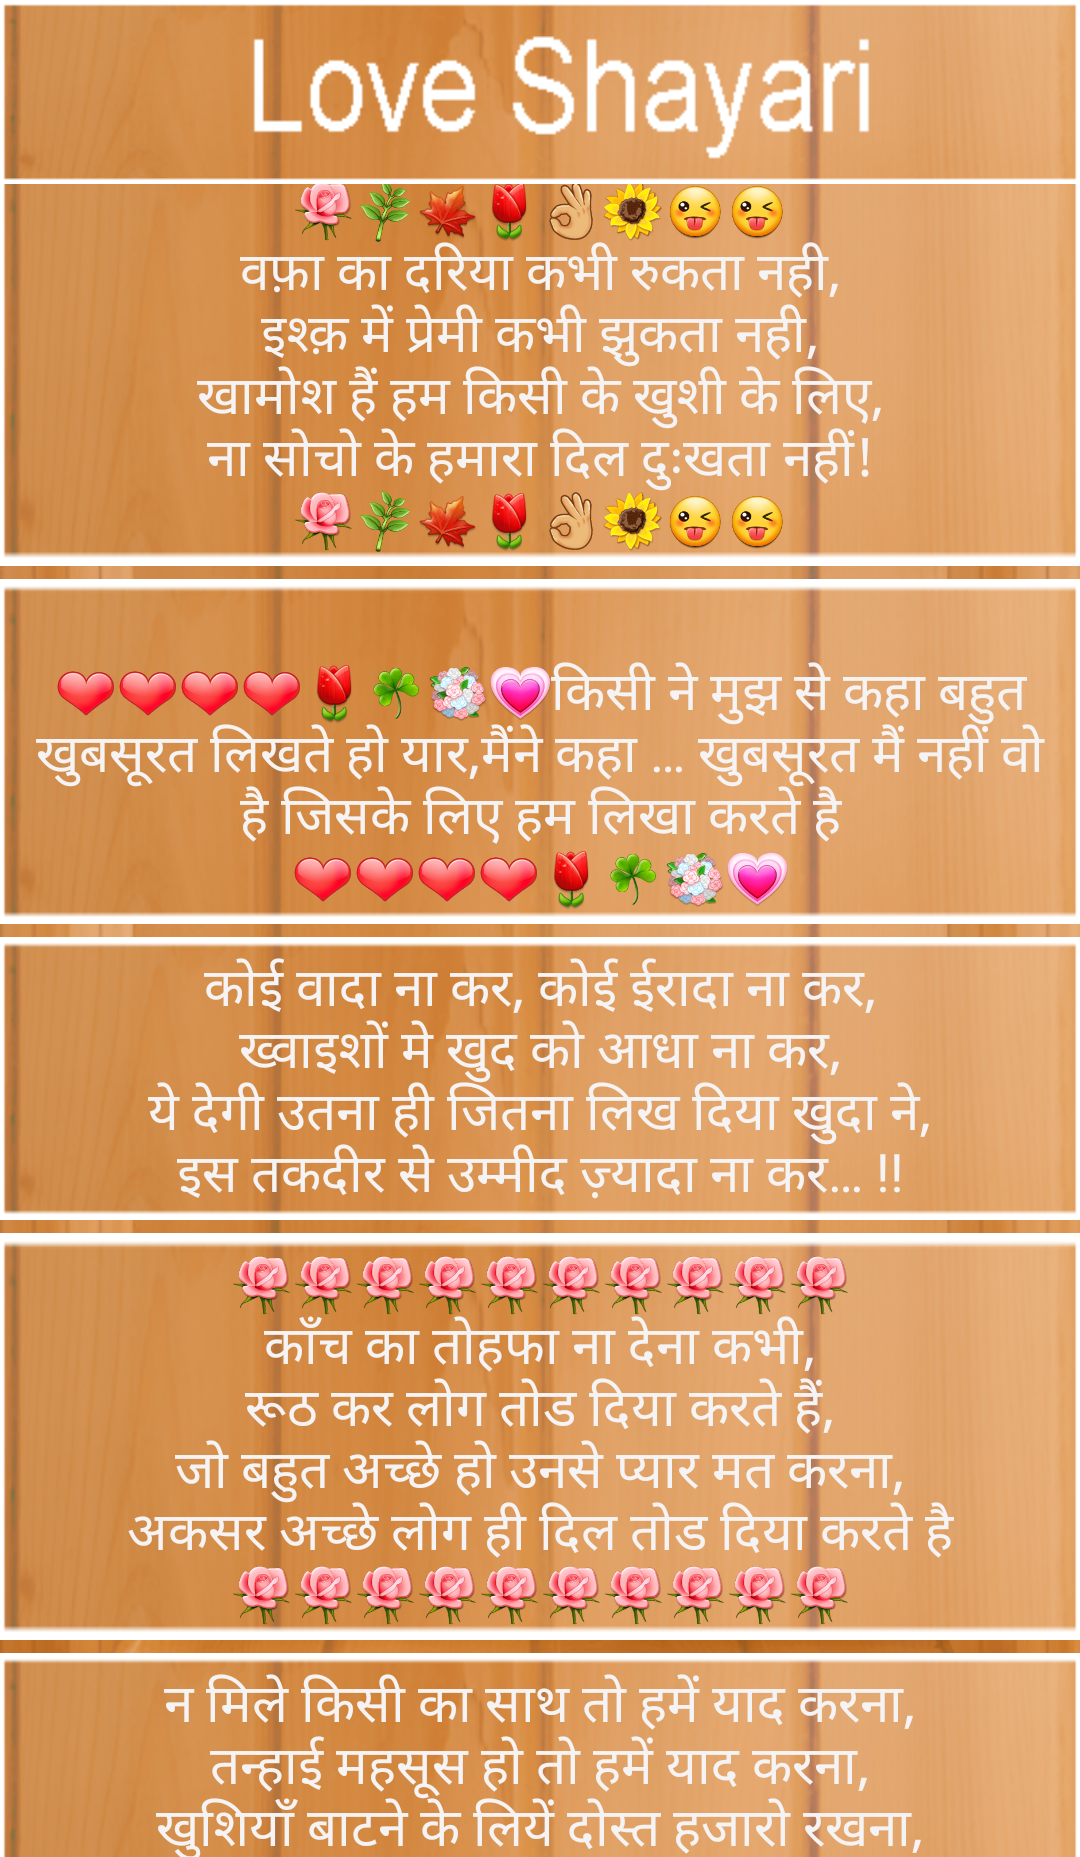 Love Shayari
🌹🌿🍁🌷👌🏼🌻😜😜
वफ़ा का दरिया कभी रुकता नही,
इश्क़ में प्रेमी कभी झुकता नही,
खामोश हैं हम किसी के खुशी के लिए,
ना सोचो के हमारा दिल दुःखता नहीं!
🌹🌿🍁🌷👌🏼🌻😜😜
❤❤❤❤🌷☘💐💗किसी ने मुझ से कहा बहुत
खुबसूरत लिखते हो यार,मैंने कहा ... खुबसूरत मैं नहीं वो
है जिसके लिए हम लिखा करते है
❤❤❤❤🌷☘💐💗
कोई वादा ना कर, कोई ईरादा ना कर,
ख्वाइशों मे खुद को आधा ना कर,
ये देगी उतना ही जितना लिख दिया खुदा ने,
इस तकदीर से उम्मीद ज़्यादा ना कर... !!
🌹🌹🌹🌹🌹🌹🌹🌹🌹🌹
काँच का तोहफा ना देना कभी,
रूठ कर लोग तोड दिया करते हैं,
जो बहुत अच्छे हो उनसे प्यार मत करना,
अकसर अच्छे लोग ही दिल तोड दिया करते है
🌹🌹🌹🌹🌹🌹🌹🌹🌹🌹
न मिले किसी का साथ तो हमें याद करना,
तन्हाई महसूस हो तो हमें याद करना,
खुशियाँ बाटने के लियें दोस्त हजारो रखना,